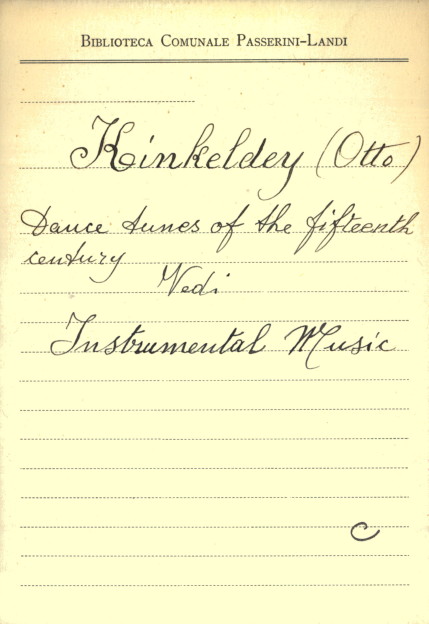 BIBLIOTECA COMUNALE PASSERINI-LANDI
Kinkeldey (Otto)
Dance tunes of the fifteenth
century
Vedi
Instrumental Music
C